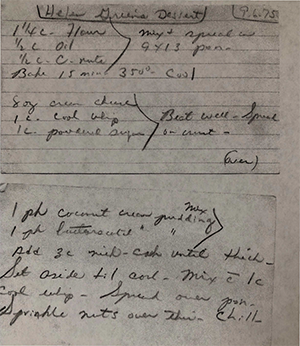 Helen Greens Dessert 9.6.75
1 1/4 c - Flour
1/2 c Oil Mix & spread in
1/2 c - C. nuts 9 x 13 pan -
Bake 15 min 350° - Cool
8 oz cream cheese
1 c - Cool Whip Beat well - Spread
1 c. powdered sugar on crust -
(over)
1 pk coconut cream pudding mix
1 pk butterscotch " "
Add 3 c milk - cook until thick -
Set aside til cool - Mix c̄ 1 c
Cool whip - Spread over pan -
Sprinkle nuts over this - Chill -